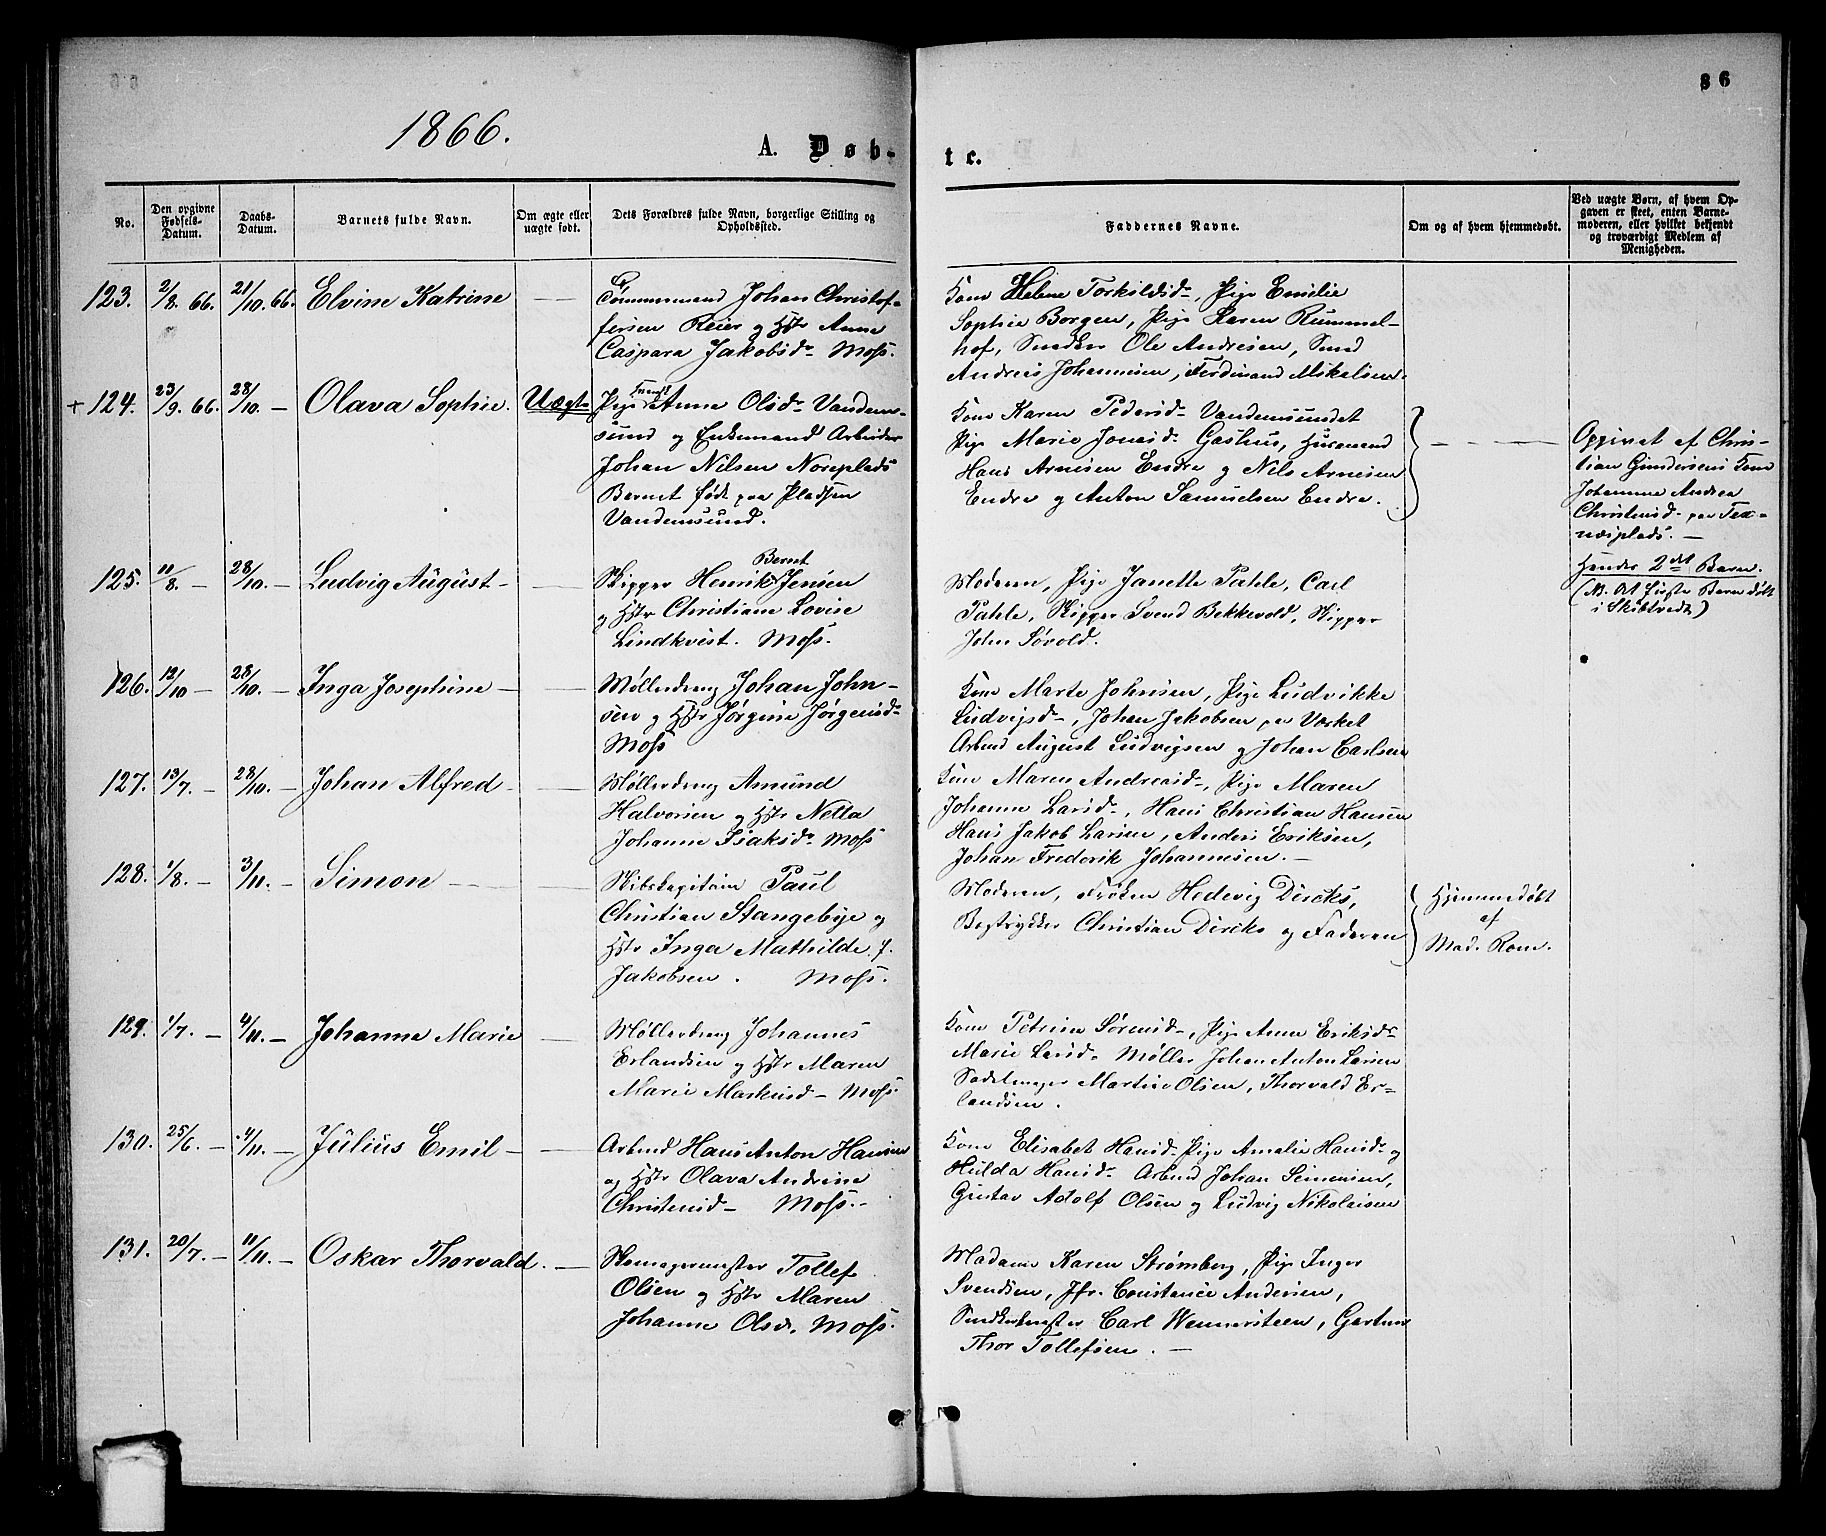 86
1866.
A. Døb-
te.
No.
Den opgivne Fødsels-Datum.
Daabs-Datum.
Barnets fulde Navn.
Om ægte eller uægte født.
Dets Forældres fulde Navn, borgerlige Stilling og Opholdssted.
Faddernes Navne.
Om og af hvem hjemmedøbt.
Ved uægte Børn, af hvem Op-
gaven er skeet, enten Barne-
moderen, eller hvilket bekjendt
og troværdigt Medlem af
Menigheden.
123. 2/8. 66. 21/10. 66. Elvine Katrine
Tømmermand Johan Christof-
fersen Reier og Hstr Anne
Caspara Jakobsd. Moss.
Kone Helene Torkildsd., Pige Emilie
Sophie Borgen, Pige Karen Rummel-
hof, Snedker Ole Andresen, Smed
Andreas Johannesen, Ferdinand Mikelsen.
+ 124. 23/9. 66. 28/10. — Olava Sophie. Uægt.
Pige Anne Olsd. Vandem-
sund og Enkemand Arbeider
Johan Nilsen Noreplads
Barnet født paa Pladsen
Vandemsund.
Kone Karen Pedersd. Vandemsundet
Pige Marie Jonasd. Gashus, Huusmand
Hans Arnesen Endre og Nils Arnesen
Endre og Anton Samuelsen Endre.
Opgivet af Chris-
tian Gundersens Kone
Johanne Andrea
Christensd. paa Tex-
næsplads. —
Hendes 2det Barn.
(NB. Det første Barn døbt
i Skibtvedt)
125. 11/8. — 28/10. — Ludvig August —
Skipper Henrik Bernt Jensen
og Hstr Christiane Lovise
Lindkvist. Moss.
Moderen, Pige Janette Pahle, Carl
Pahle, Skipper Svend Bekkevold, Skipper
John Søvold.
126. 12/10 — 28/10. — Inga Josephine —
Møllerdreng Johan John-
sen og Hstr Jørgine Jørgensd.
Moss
Kone Marte Johnsen, Pige Ludvikke
Ludvigsd., Johan Jakobsen paa Værket
Arbmd August Ludvigsen og Johan Carlsen
127. 13/7. — 28/10. — Johan Alfred —
Møllerdreng Amund
Halvorsen og Hstr Netta
Johanne Isaksd. Moss
Kone Maren Andreasd., Pige Maren
Johanne Larsd., Hans Christian Hansen
Hans Jakob Larsen, Anders Eriksen,
Johan Frederik Johannesen. —
128. 1/8. — 3/11. — Simon —
Skibskapitain Paul
Christian Stangebye og
Hstr Inga Mathilde f.
Jakobsen. Moss.
Moderen, Frøken Hedevig Dircks,
Bogtrykker Christian Dircks og Faderen
Hjemmedøbt
af
Mad. Rom.
129. 1/7. — 4/11. — Johanna Marie —
Møllerdreng Johannes
Erlandsen og Hstr Maren
Marie Markusd. Moss.
Kone Petrine Sørensd., Pige Anne Eriksd.
Marie Larsd. Møller Johan Anton Larsen
Sadelmager Martin Olsen, Thorvald Er-
landsen.
130. 25/6. — 4/11. — Julius Emil —
Arbmd Hans Anton Hansen
og Hstr Olava Andrine
Christensd. Moss.
Kone Elisabet Hansd. Pige Amalie Hansd. og
Hulda Hansd. Arbmd Johan Simensen,
Gustav Adolf Olsen og Ludvig Nikolaisen
131. 20/7. — 11/11. — Oskar Thorvald. —
Skomagermester Tollef
Olsen og Hstr Maren
Johanne Olsd. Moss.
Madame Karen Strømberg, Pige Inger
Svendsen, Jfr. Constance Andersen,
Snedkermester Carl Wennersteen, Gartner
Thor Tollefsen. —